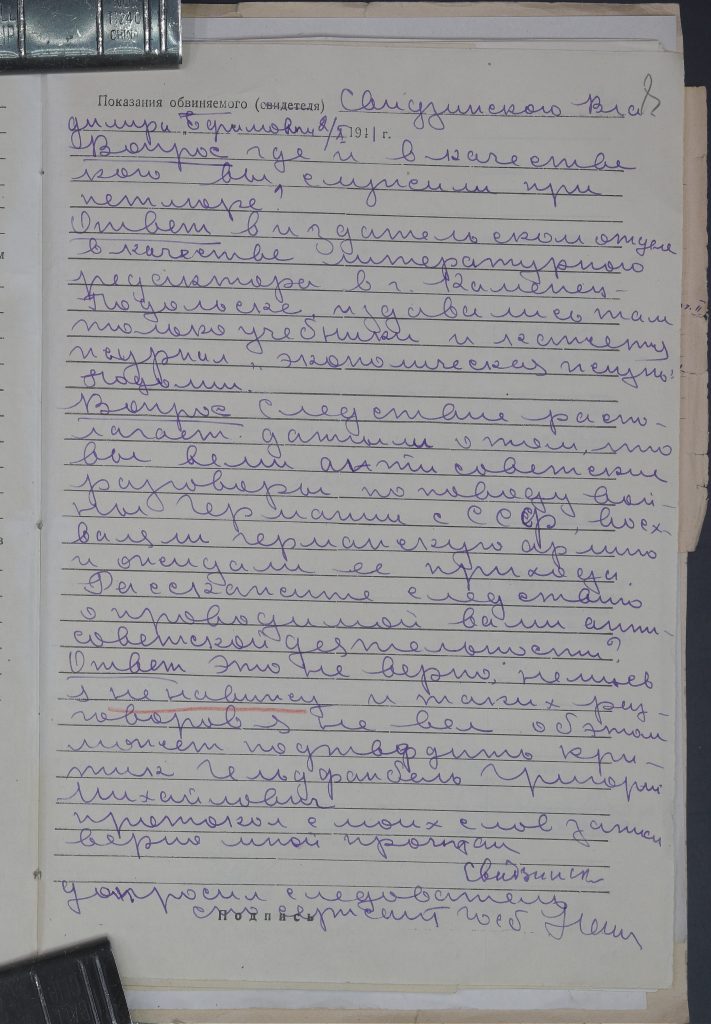 Показания обвиняемого (свидетеля) Свидзинского Вла
димира Ефимовича 2/X 1941 г.
Вопрос где и в качестве
кого вы служили при
петлюре
Ответ в издательском отделе
в качестве литературного
редактора в г. Каменец-
Подольске, издавались там
только учебники и кажется
журнал „экономическая жизнь"
Подолии.
Вопрос Следствие распо-
лагает данными о том, что
вы вели антисоветские
разговоры по поводу вой-
ны Германии с СССР, восх-
валяли германскую армию
и ожидали ее прихода.
Расскажите следствию
о проводимой вами анти-
советской деятельности?
Ответ это не верно, немцев
я ненавижу и таких раз-
говоров я не вел об этом
может подтвердить кри-
тик Гельдфандбейн Григорий
Михайлович
протокол с моих слов записан
верно мной прочитан
Свидзинск
допросил следователь
сержант госб
Подпись